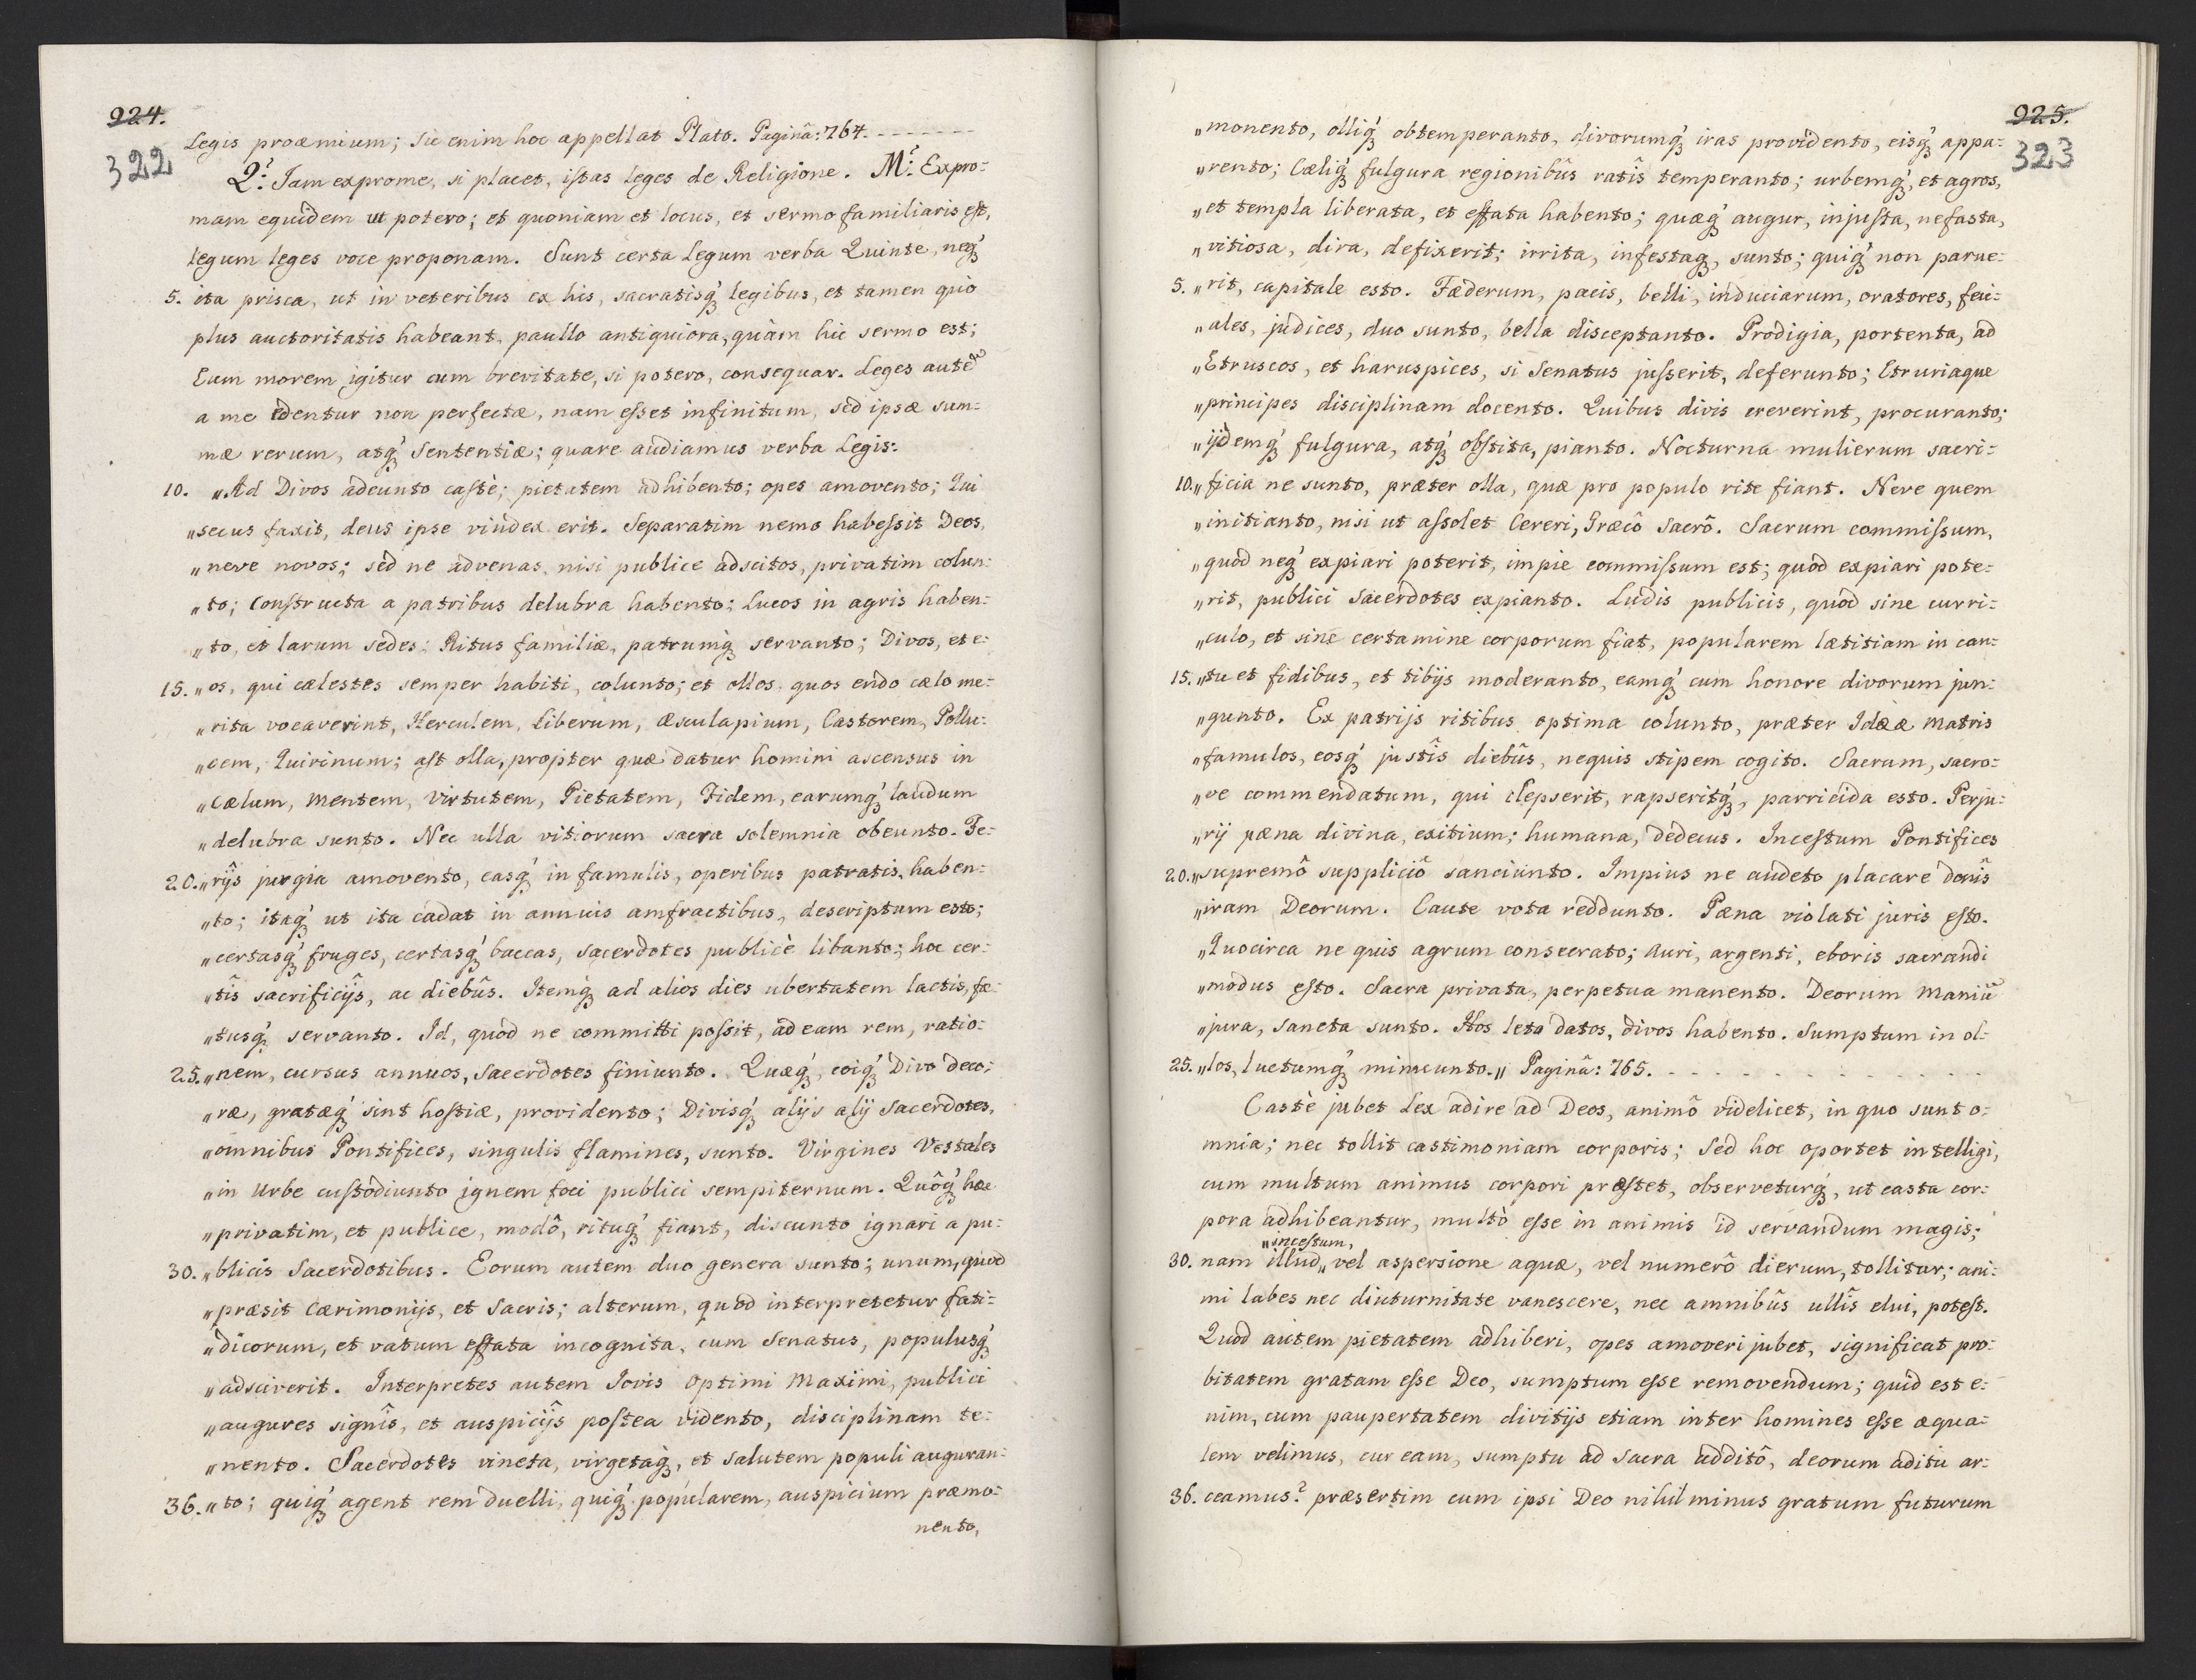 924.
322
Legis proæmium; sic enim hoc appellat Plato. Paginâ: 764. - - - - - - -
Q.ˢ Jam exprome, si placet, istas leges de Religione. M.ˢ Expro:
mam equidem ut potero; et quoniam et locus, et sermo familiaris est,
legum leges voce proponam. Sunt certa legum verba Quinte, neq́ꝫ
5. ita prisca, ut in veteribus ex his, sacratisq́ꝫ legibus, et tamen quò
plus auctoritatis habeant, paullo antiquiora, quàm hic sermo est;
Eum morem igitur cum brevitate, si potero, consequar. Leges autē
a me edentur non perfectæ, nam esset infinitum, sed ipsæ sum:
mæ rerum, atq́ꝫ Sententiæ; quare audiamus verba Legis:
10. „Ad Divos adeunto castè; pietatem adhibento; opes amovento; Qui
„secus faxit, deus ipse vindex erit. Separatim nemo habessit Deos,
„neve novos; sed ne advenas, nisi publice adscitos, privatim colun:
„to; Constructa a patribus delubra habento; Lucos in agris haben:
„to, et larum sedes; Ritus familiæ, patrumq́ꝫ servanto; Divos, et e:
15. „os, qui cælestes semper habiti, colunto; et ollos, quos endo cælo me:
„rita vocaverint, Herculem, Liberum, Æsculapium, Castorem, Pollu:
„cem, Quirinum; ast olla, propter quæ datur homini ascensus in
„Cælum, Mentem, Virtutem, Pietatem, Fidem, earumq́ꝫ laudum
„delubra sunto. Nec ulla vitiorum sacra solemnia obeunto. Fe:
20. „rijs jurgia amovento, easq́ꝫ in famulis, operibus patratis, haben:
„to; itaq́ꝫ ut ita cadat in annuis amfractibus, descriptum esto;
„certasq́ꝫ fruges, certasq́ꝫ baccas, sacerdotes publicè libanto; hoc cer:
„tîs sacrificijs, ac diebûs. Itemq́ꝫ ad alios dies ubertatem lactis, fæ:
„tusq́ꝫ servanto. Id, quod ne committi possit, ad eam rem, ratio:
25. „nem, cursus annuos, Sacerdotes finiunto. Quæq́ꝫ, coiq́ꝫ Divo deco:
„ræ, gratæq́ꝫ sint hostiæ, providento; Divisq́ꝫ alijs alij Sacerdotes,
„omnibus Pontifices, singulis flamines, sunto. Virgines Vestales
„in Urbe custodiunto ignem foci publici sempiternum. Quôq́ꝫ hæc
„privatim, et publice, modô, rituq́ꝫ fiant, discunto ignari a pu:
30. „blicis Sacerdotibus. Eorum autem duo genera sunto; unum, quod
„præsit Cærimonijs, et Sacris; alterum, quod interpretetur fati:
„dicorum, et vatum effata incognita, cum Senatus, populusq́ꝫ
„adsciverit. Interpretes autem Jovis Optimi Maximi, publici
„augures signîs, et auspicijs postea vidento, disciplinam te:
„nento. Sacerdotes vineta, virgetaq́ꝫ, et salutem populi auguran:
36. „to; quiq́ꝫ agent rem duelli, quiq́ꝫ popularem, auspicium præmo:
nento,
925.
323
„monento, olliq́ꝫ obtemperanto, divorumq́ꝫ iras providento, eisq́ꝫ appa:
„rento; Cæliq́ꝫ fulgura regionibûs ratîs temperanto; urbemq́ꝫ, et agros,
„et templa liberata, et effata habento; quæq́ꝫ augur, injusta, nefasta,
„vitiosa, dira, defixerit; irrita, infestaq́ꝫ, sunto; quiq́ꝫ non parue:
5. „rit, capitale esto. Fæderum, pacis, belli, induciarum, oratores, feci:
„ales, judices, duo sunto, bella disceptanto. Prodigia, portenta, ad
„Etruscos, et haruspices, si Senatus jusserit, deferunto; Etruriaque
„principes disciplinam docento. Quibus divis creverint, procuranto;
„ijdemq́ꝫ fulgura, atq́ꝫ obstita, pianto. Nocturna mulierum sacri:
10. „ficia ne sunto, præter olla, quæ pro populo rite fiant. Neve quem
„initianto, nisi ut assolet Cereri, Græcô Sacrô. Sacrum commissum,
„quod neq́ꝫ expiari poterit, impie commissum est; quod expiari pote:
„rit, publici Sacerdotes expianto. Ludis publicis, quod sine curri:
„culo, et sine certamine corporum fiat, popularem lætitiam in can:
15. „tu et fidibus, et tibijs moderanto, eamq́ꝫ cum honore divorum jun:
„gunto. Ex patrijs ritibus optima colunto, præter Idææ Matris
„famulos, eosq́ꝫ justîs diebûs, nequis stipem cogito. Sacrum, sacro:
„ve commendatum, qui clepserit, rapseritq́ꝫ, parricida esto. Perju:
„rij pæna divina, exitium; humana, dedecus. Incestum Pontifices
20. „supremô suppliciô sanciunto. Impius ne audeto placare donîs
„iram Deorum. Caute vota reddunto. Pæna violati juris esto.
„Quocirca ne quis agrum consecrato; Auri, argenti, eboris sacrandi
„modus esto. Sacra privata, perpetua manento. Deorum Maniū
„jura, sancta sunto. Hos leto datos, divos habento. Sumptum in ol:
25. „los, luctumq́ꝫ minuunto.„ Paginâ: 765. - - - - - - - - - - - -
Castè jubet Lex adire ad Deos, animô videlicet, in quo sunt o:
mnia; nec tollit castimoniam corporis; Sed hoc oportet intelligi,
cum multum animus corpori præstet, observeturq́ꝫ, ut casta cor:
pora adhibeantur, multò esse in animis id servandum magis;
„incestum,
30. nam illud„ vel aspersione aquæ, vel numerô dierum, tollitur; ani:
mi labes nec diuturnitate vanescere, nec amnibûs ullîs elui, potest.
Quod autem pietatem adhiberi, opes amoveri jubet, significat pro:
bitatem gratam esse Deo, sumptum esse removendum; quid est e:
nim, cum paupertatem divitijs etiam inter homines esse æqua:
lem velimus, cur eam, sumptu ad Sacra additô, deorum aditu ar:
36. ceamus? præsertim cum ipsi Deo nihil minus gratum futurum